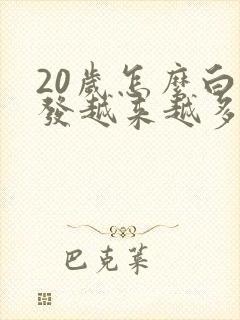 20歲怎麼白
發越来越多
巴克葉